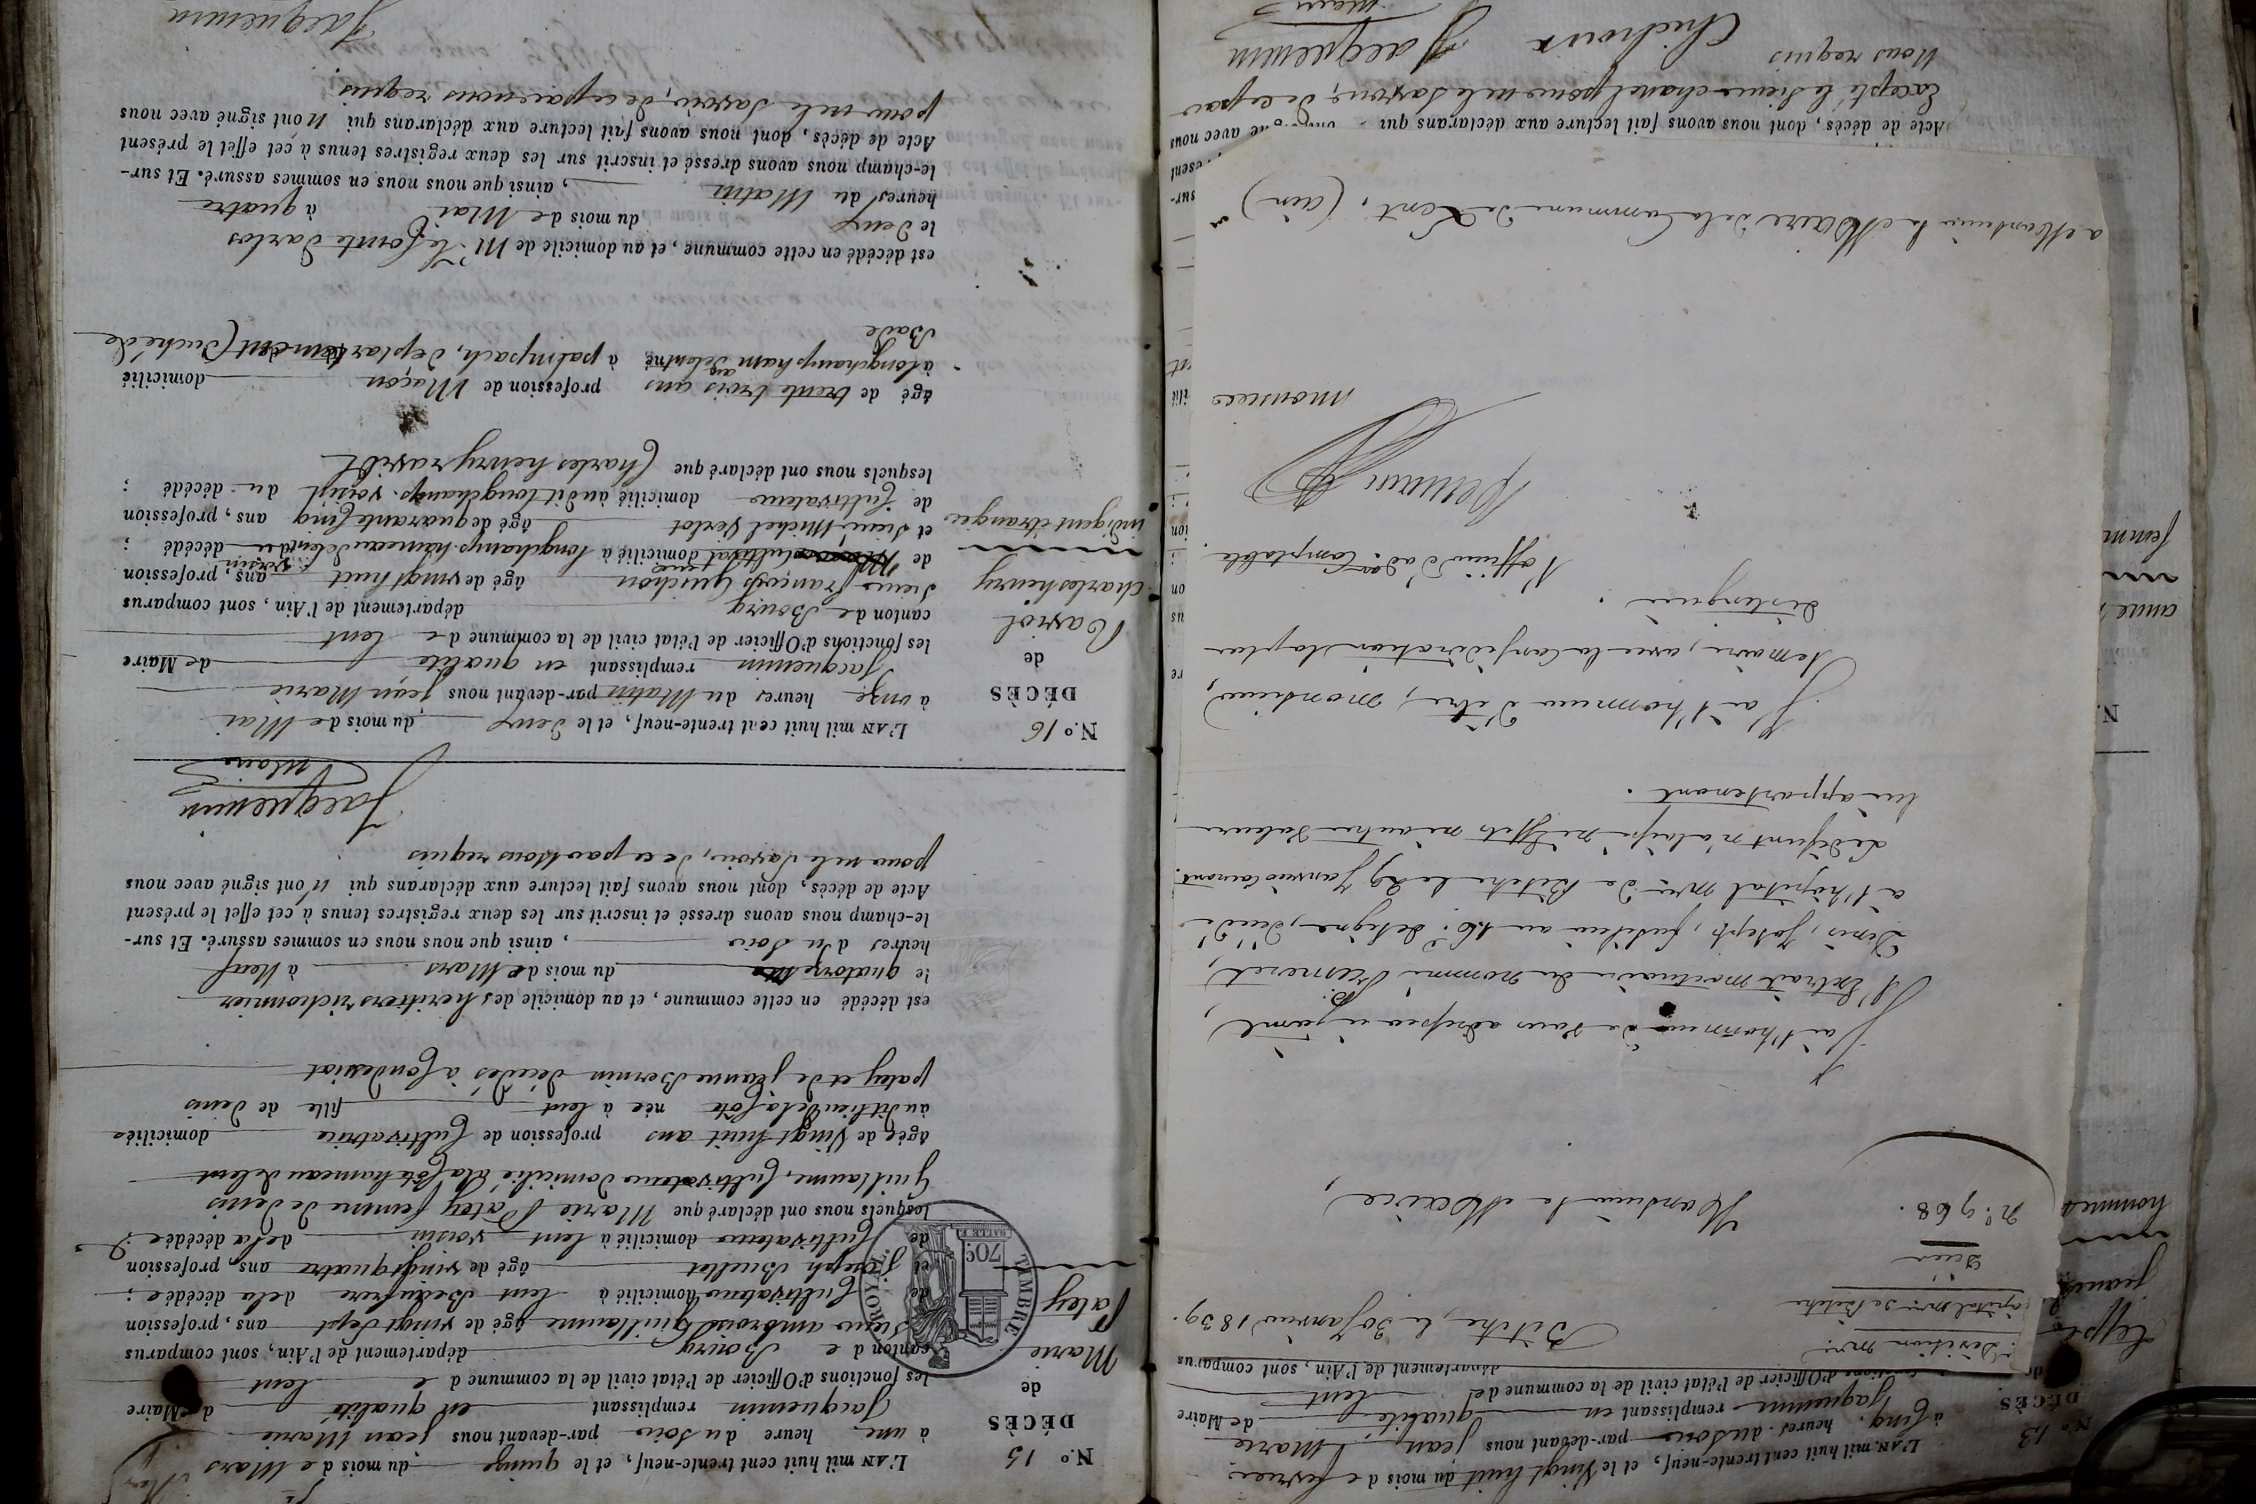 N.º 13
DÉCÈS
L'AN mil huit cent trente-neuf, et le Vingt huit du mois de fevrier
à Cinq heures du soir par-devant nous jean Marie
Jaquemin remplissant en qualité de Maire
les fonctions d'Officier de l'état civil de la commune de lent
département de l'Ain, sont comparus
Division mre
hôpital mre de Bitche
Décès
N.º 968.
Bitche, le 30 Janvier 1839.
Monsieur le Maire,
J'ai l'honneur de vous adresser ci joint
l'Extrait mortuaire du nommé
Denis, Joseph, fusilier au 16.e de ligne, décédé
à l'hôpital mre de Bitche le 29 Janvier Courant.
Le défunt n'a laissé ni Effets ni autres valeurs
lui appartenant.
J'ai l'honneur d'être, monsieur
le maire, avec la Considération la plus
distinguée.
l'officier d'ad.on Comptable
monsieur
a Monsieur le Maire de la Commune de Lent. (ain)
Acte de décès, dont nous avons fait lecture aux déclarans qui
avec nous
Excepté le sieur chanel pour ne le savoir, de ce par
Nous requis
Chichoux Jacquemin
maire
N.º 15
DÉCÈS
de
Marie
Patey
L'AN mil huit cent trente-neuf, et le quinze du mois de Mars
à une heure du soir par-devant nous jean Marie
Jacquemin remplissant en qualité de Maire
les fonctions d'Officier de l'état civil de la commune de lent
canton de Bourg département de l'Ain, sont comparus
Sieur ambroise Guillaume âgé de vingt sept ans, profession
de Cultivateur domicilié à lent Beaufrere de la décédée ;
et joseph Buellet âgé de vingt quatre ans, profession
de Cultivateur domicilié à lent voisin de la décédée ;
lesquels nous ont déclaré que Marie Patey femme de denis
Guillaume, Cultivateur domicilié à la Côte hameau de lent
âgée de Vingt huit ans profession de Cultivatrice domiciliée
au dit lieu de la Côte née à lent fille de denis
patey et de jeanne Bernin décédés à Condessiat
est décédée en cette commune, et au domicile des heritiers richonnier
le quatorze du mois de Mars à Neuf
heures du soir, ainsi que nous nous en sommes assuré. Et sur-
le-champ nous avons dressé et inscrit sur les deux registres tenus à cet effet le présent
Acte de décès, dont nous avons fait lecture aux déclarans qui n'ont signé avec nous
pour ne le savoir, de ce par Nous requis
Jacquemin
maire
N.º 16
DÉCÈS
de
Raviol
Charles henry
indigent étranger
L'AN mil huit cent trente-neuf, et le deux du mois de Mai
à onze heures du Matin par-devant nous jean Marie
Jacquemin remplissant en qualité de Maire
les fonctions d'Officier de l'état civil de la commune de lent
canton de Bourg département de l'Ain, sont comparus
Sieur français Guichon âgé de vingt huit ans, profession
domicilié à longchamp hameau de lent voisin du décédé ;
et sieur Michel Verlot âgé de quarante Cinq ans, profession
de Cultivateur domicilié au dit longchamp voisin du décédé ;
lesquels nous ont déclaré que Charles henry
âgé de trente trois ans profession de Maçon domicilié
à longchamp ham au de lent né à palmpach, département (duché de
Bade
est décédé en cette commune, et au domicile de Mr le Comte Darlos
le deux du mois de Mai à quatre
heures du Matin, ainsi que nous nous en sommes assuré. Et sur-
le-champ nous avons dressé et inscrit sur les deux registres tenus à cet effet le présent
Acte de décès, dont nous avons fait lecture aux déclarans qui n'ont signé avec nous
pour ne le savoir, de ce par nous requis
Jacquemin
TIMBRE ROYAL
70c